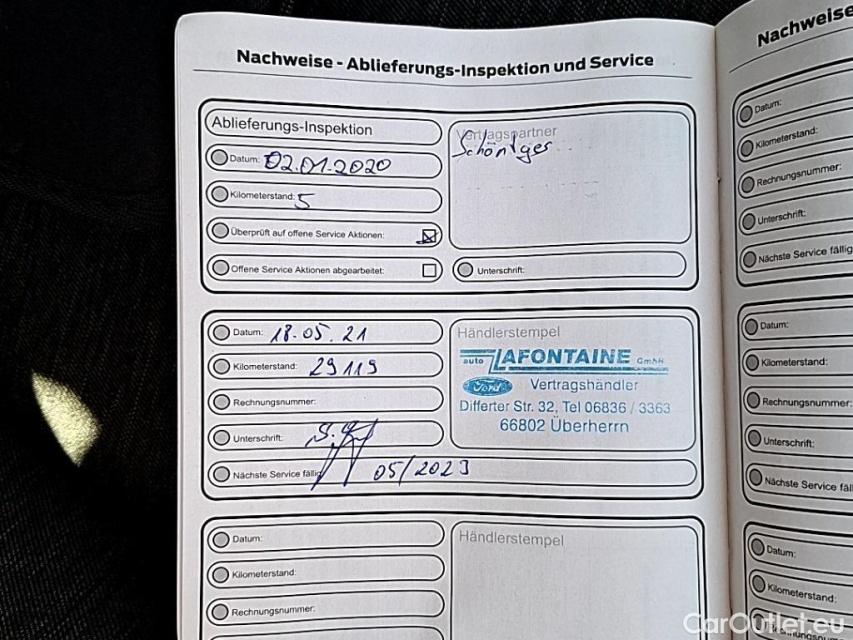 Nachweise - Ablieferungs-Inspektion und Service
Ablieferungs-Inspektion
Datum: 02.01.2020
Kilometerstand: 5
Überprüft auf offene Service Aktionen:
Offene Service Aktionen abgearbeitet:
Vertragspartner
Schöntges
Unterschrift:
Datum: 18.05.21
Kilometerstand: 29119
Rechnungsnummer:
Unterschrift:
Nächste Service fällig 05/2023
Händlerstempel
auto LAFONTAINE GmbH
Ford Vertragshändler
Differter Str. 32, Tel 06836 / 3363
66802 Überherrn
Datum:
Kilometerstand:
Rechnungsnummer:
Händlerstempel
Nachweise
Datum:
Kilometerstand:
Rechnungsnummer:
Unterschrift:
Nächste Service fällig
Datum:
Kilometerstand:
Rechnungsnummer:
Unterschrift:
Nächste Service fäl
Datum:
Kilometerstand:
CarOutlet.eu